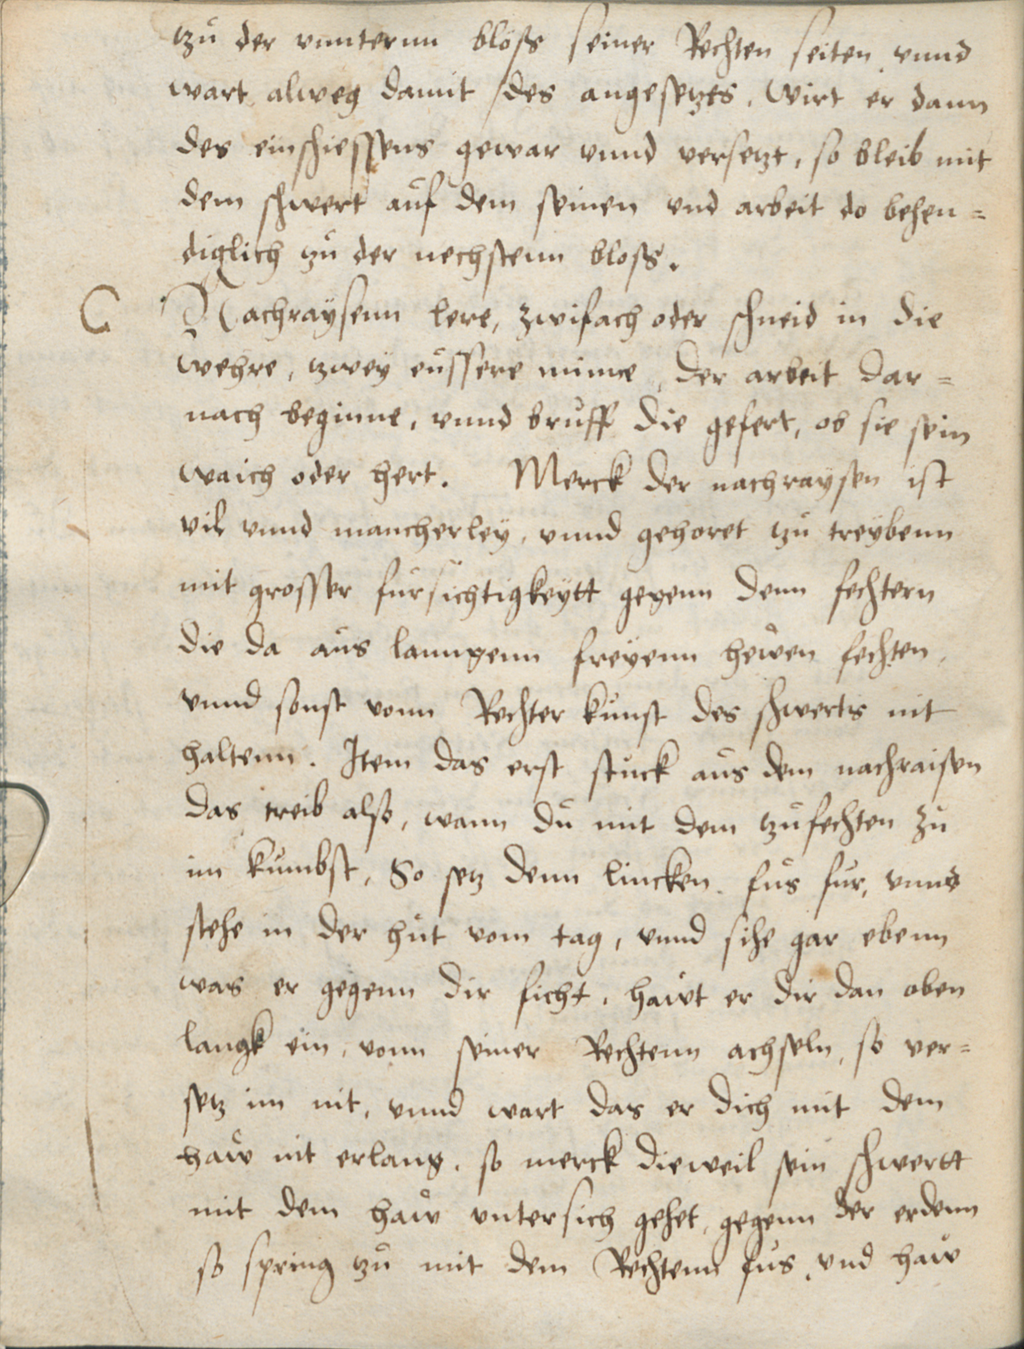 tzů der vnnternn blöss seiner Rechten seiten vnnd
wart alweg damit des angesetzts. Wirt er dann
des einschiessens gewar vnnd versetzt, so bleib mit
dem schwert aůf dem seinen vnd arbeit do behen=
diglich tzů der nechstenn bloss.
C Nachraysenn lere, zwifach oder schneid in die
wehre, tzwey eůssere mince, der arbeit dar=
nach beginne, vnnd brůff die gefert, ob sie sein
waich oder hert. Merck der nachraysen ist
vil vnnd mancherley, vnnd gehoret tzů treybenn
mit grosser fůrsichtigkeytt gegenn denn fechtern
die da aůs lanngenn freyenn hewen fechten,
vnnd sonst vonn Rechter kůnst des schwerts nit
haltenn. Item das erst stůck aůs dem nachraisen
das treib also, wann dů mit dem tzůfechten zů
im kůmbst, So setz denn lincken fůs fůr, vnnd
stehe in der hůt vom tag, vnnd sihe gar ebenn
was er gegenn dir ficht. hawt er dir dan oben
langk ein, vonn seiner Rechtenn achseln, so ver=
setz im nit, vnnd wart das er dich mit dem
haw nit erlang. so merck dieweil sein schwertt
mit dem haw vntersich gehet, gegenn der erdenn
so spring tzů mit dem Rechtenn fůs, vnd haw